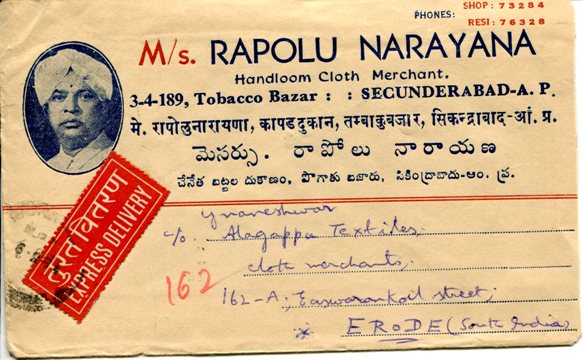 PHONES: SHOP: 73284
RESI: 76328
M/s. RAPOLU NARAYANA
Handloom Cloth Merchant,
3-4-189, Tobacco Bazar : : SECUNDERABAD-A. P.
मे. रापोलुनारायणा, कापड दुकान, तम्बाकुबजार, सिकन्द्राबाद-आं. प्र.
మెసర్సు. రాపోలు నారాయణ
చేనేత బట్టల దుకాణం, పొగాకు బజారు, సికింద్రాబాదు-ఆం. ప్ర.
तुरत वितरण
EXPRESS DELIVERY
Ynaneshwar
c/o Alagappa Textiles
cloth merchants,
162
162-A, Easwarankoil street,
* ERODE (South India)